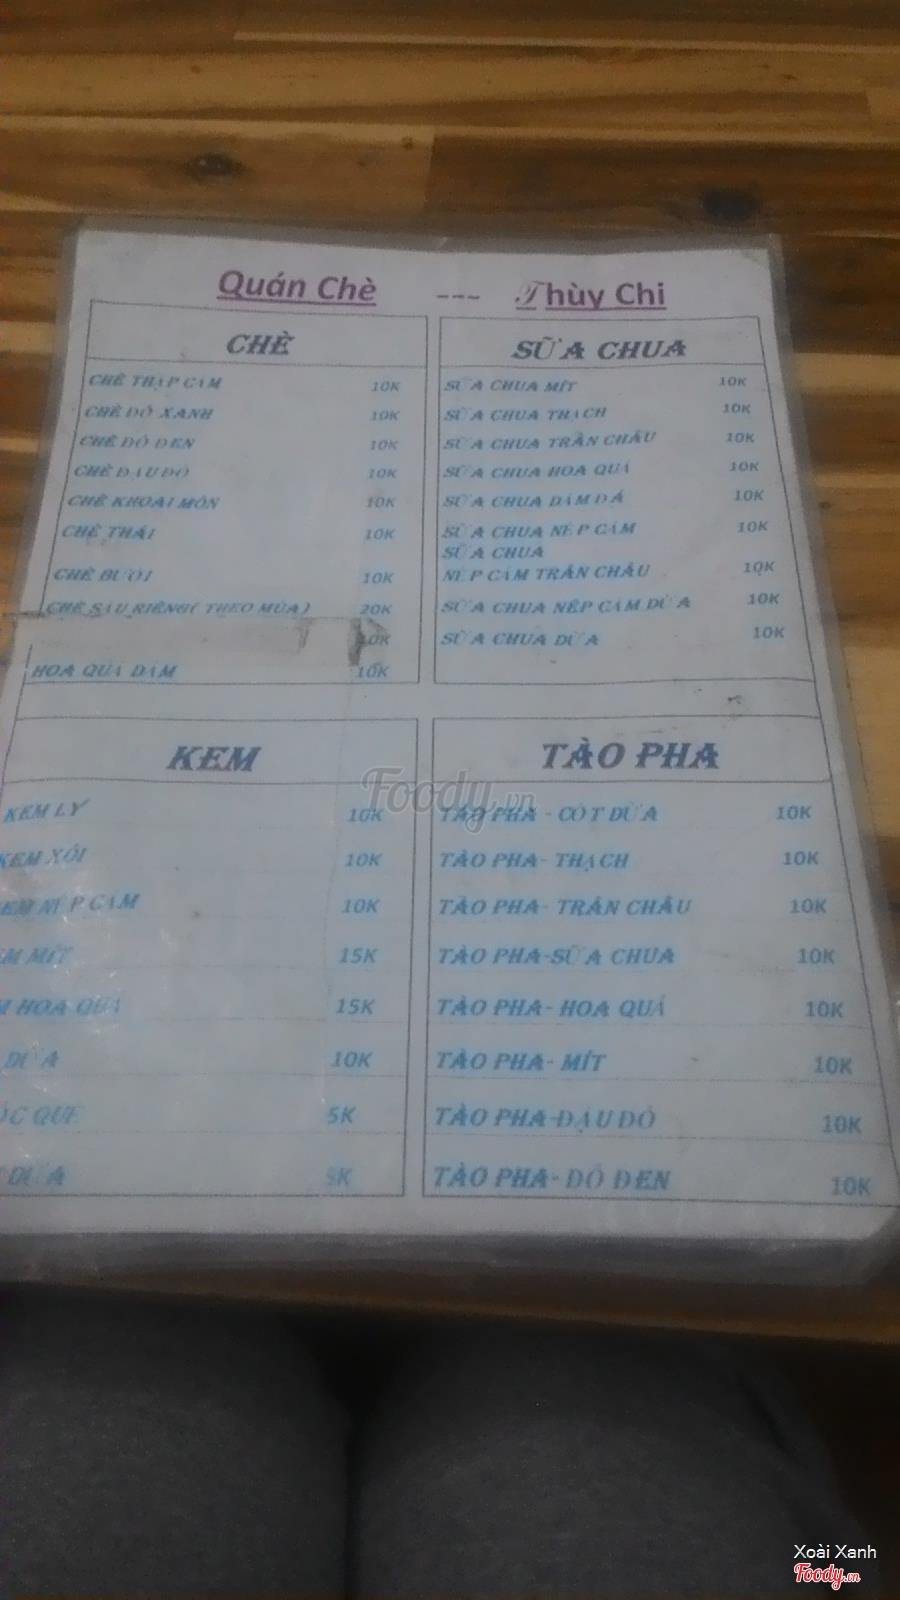 Quán Chè --- Thùy Chi
CHÈ
CHÈ THẬP CẨM 10K
CHÈ ĐỖ XANH 10K
CHÈ ĐỖ ĐEN 10K
CHÈ ĐẬU ĐỎ 10K
CHÈ KHOAI MÔN 10K
CHÈ THÁI 10K
CHÈ BƯỞI 10K
CHÈ SẦU RIÊNG( THEO MÙA) 20K
10K
HOA QUẢ DẦM 10K
SỮA CHUA
SỮA CHUA MÍT 10K
SỮA CHUA THẠCH 10K
SỮA CHUA TRÂN CHÂU 10K
SỮA CHUA HOA QUẢ 10K
SỮA CHUA DẦM ĐÁ 10K
SỮA CHUA NẾP CẨM 10K
SỮA CHUA
NẾP CẨM TRÂN CHÂU 10K
SỮA CHUA NẾP CẨM DỪA 10K
SỮA CHUA DỪA 10K
KEM
KEM LY 10K
KEM XÔI 10K
EM NẾP CẨM 10K
EM MÍT 15K
M HOA QUẢ 15K
DỪA 10K
ỐC QUẾ 5K
DỪA 5K
TÀO PHA
TÀO PHA - CỐT DỪA 10K
TÀO PHA- THẠCH 10K
TÀO PHA- TRÂN CHÂU 10K
TÀO PHA-SỮA CHUA 10K
TÀO PHA- HOA QUẢ 10K
TÀO PHA- MÍT 10K
TÀO PHA-ĐẬU ĐỎ 10K
TÀO PHA- ĐỖ ĐEN 10K
Foody.vn
Xoài Xanh
Foody.vn